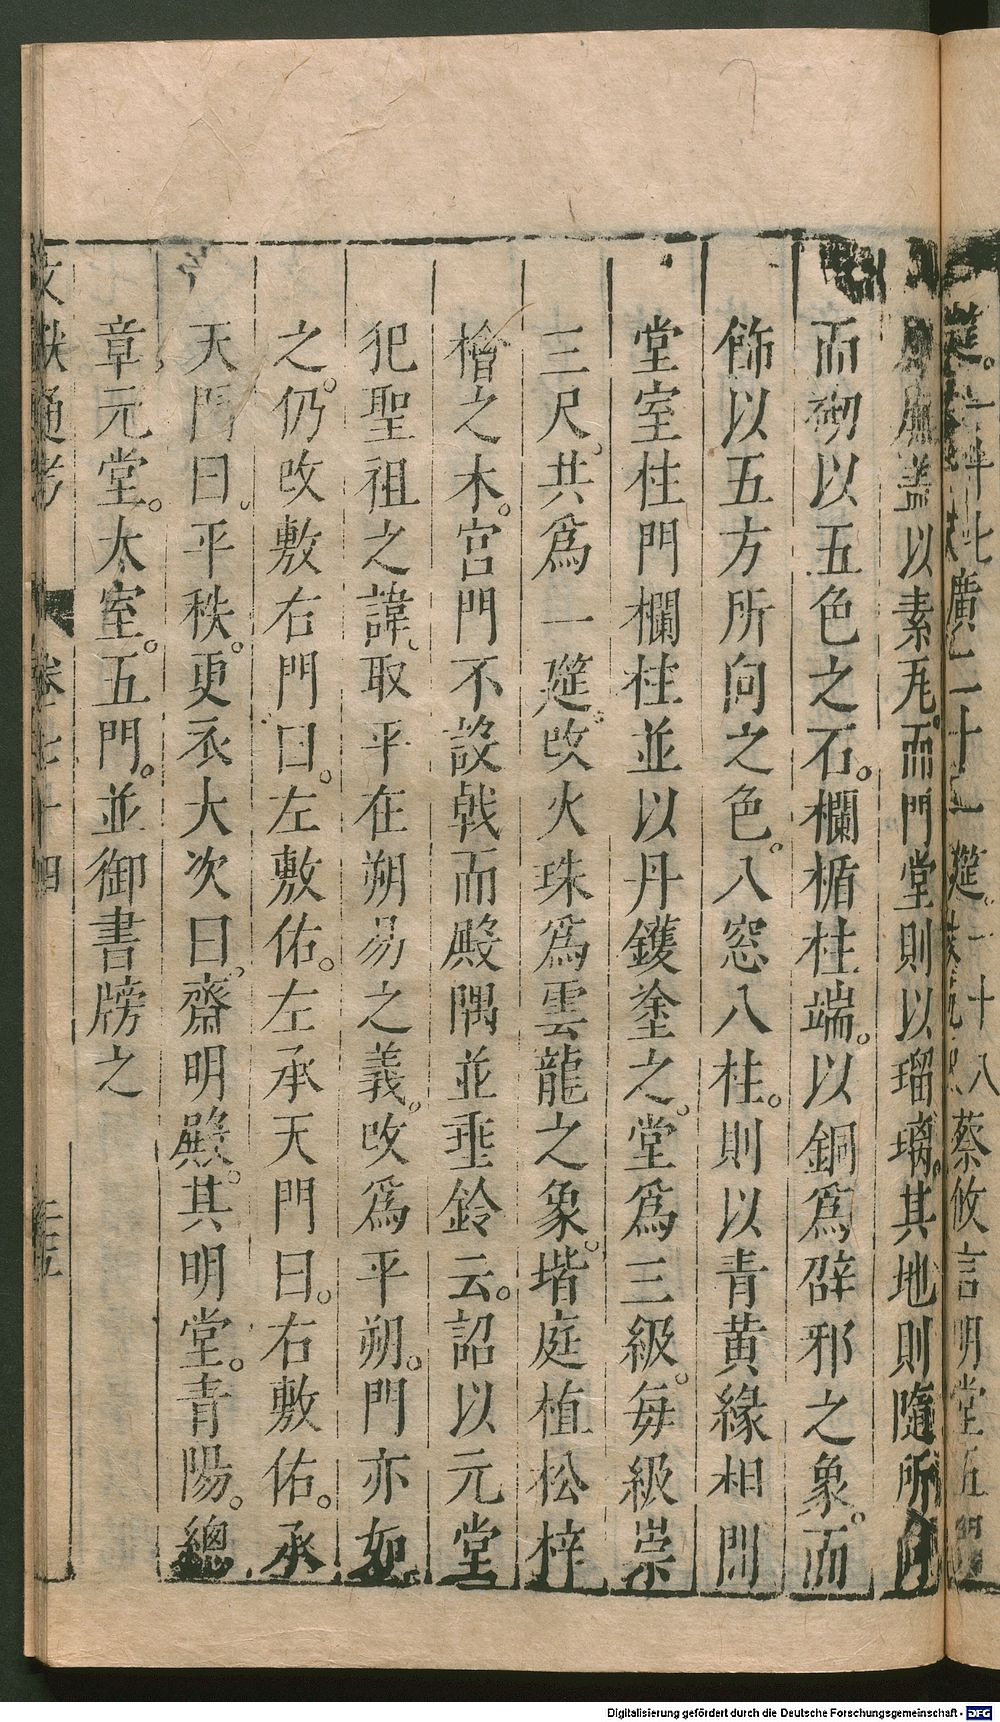 蔡攸言明堂五門
廡蓋以素瓦。而門堂則以瑠璃。其地則隨所向
而砌以五色之石。欄楯柱端。以銅爲辟邪之象。而
飾以五方所向之色。八窓八柱。則以青黃緣相間
堂室柱門欄柱並以丹鑊塗之。堂爲三級。每級崇
三尺。共爲一筵。改火珠爲雲龍之象。堦庭植松梓
檜之木。宮門不設戟而殿隅並垂鈴云。詔以元堂
犯聖祖之諱。取平在朔易之義。改爲平朔。門亦如
之。仍改敷右門曰。左敷佑。左承天門曰。右敷佑。承
天門曰。平秩。更衣大次曰。齋明殿。其明堂。青陽。總
章。元堂。太室。五門。並御書牓之
文獻通考 卷七十四
Digitalisierung gefördert durch die Deutsche Forschungsgemeinschaft - DFG